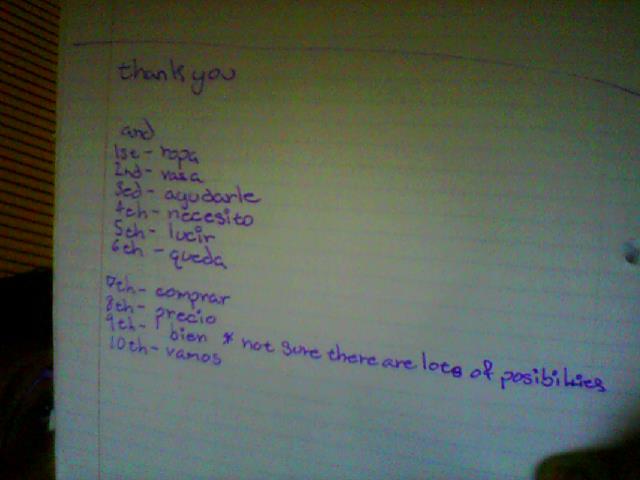 thank you
and
1st - ropa
2nd - vasa
3ed - ayudarle
4th - necesito
5th - lucir
6th - queda
7th - comprar
8th - precio
9th - bien * not sure there are lots of posibilities
10th - vamos